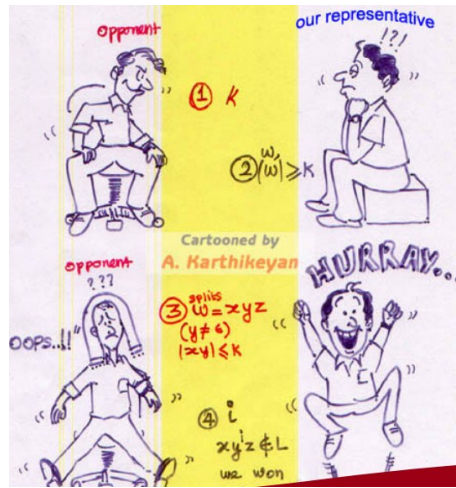 opponent
our representative
!?!
① K
② w, |w| ⩾ K
Cartooned by
A. Karthikeyan
opponent
???
HURRAY...
OOPS..!!
③ splits w = xyz
(y ≠ ϵ)
|xy| ⩽ K
④ i
xyⁱz ∉ L
we won